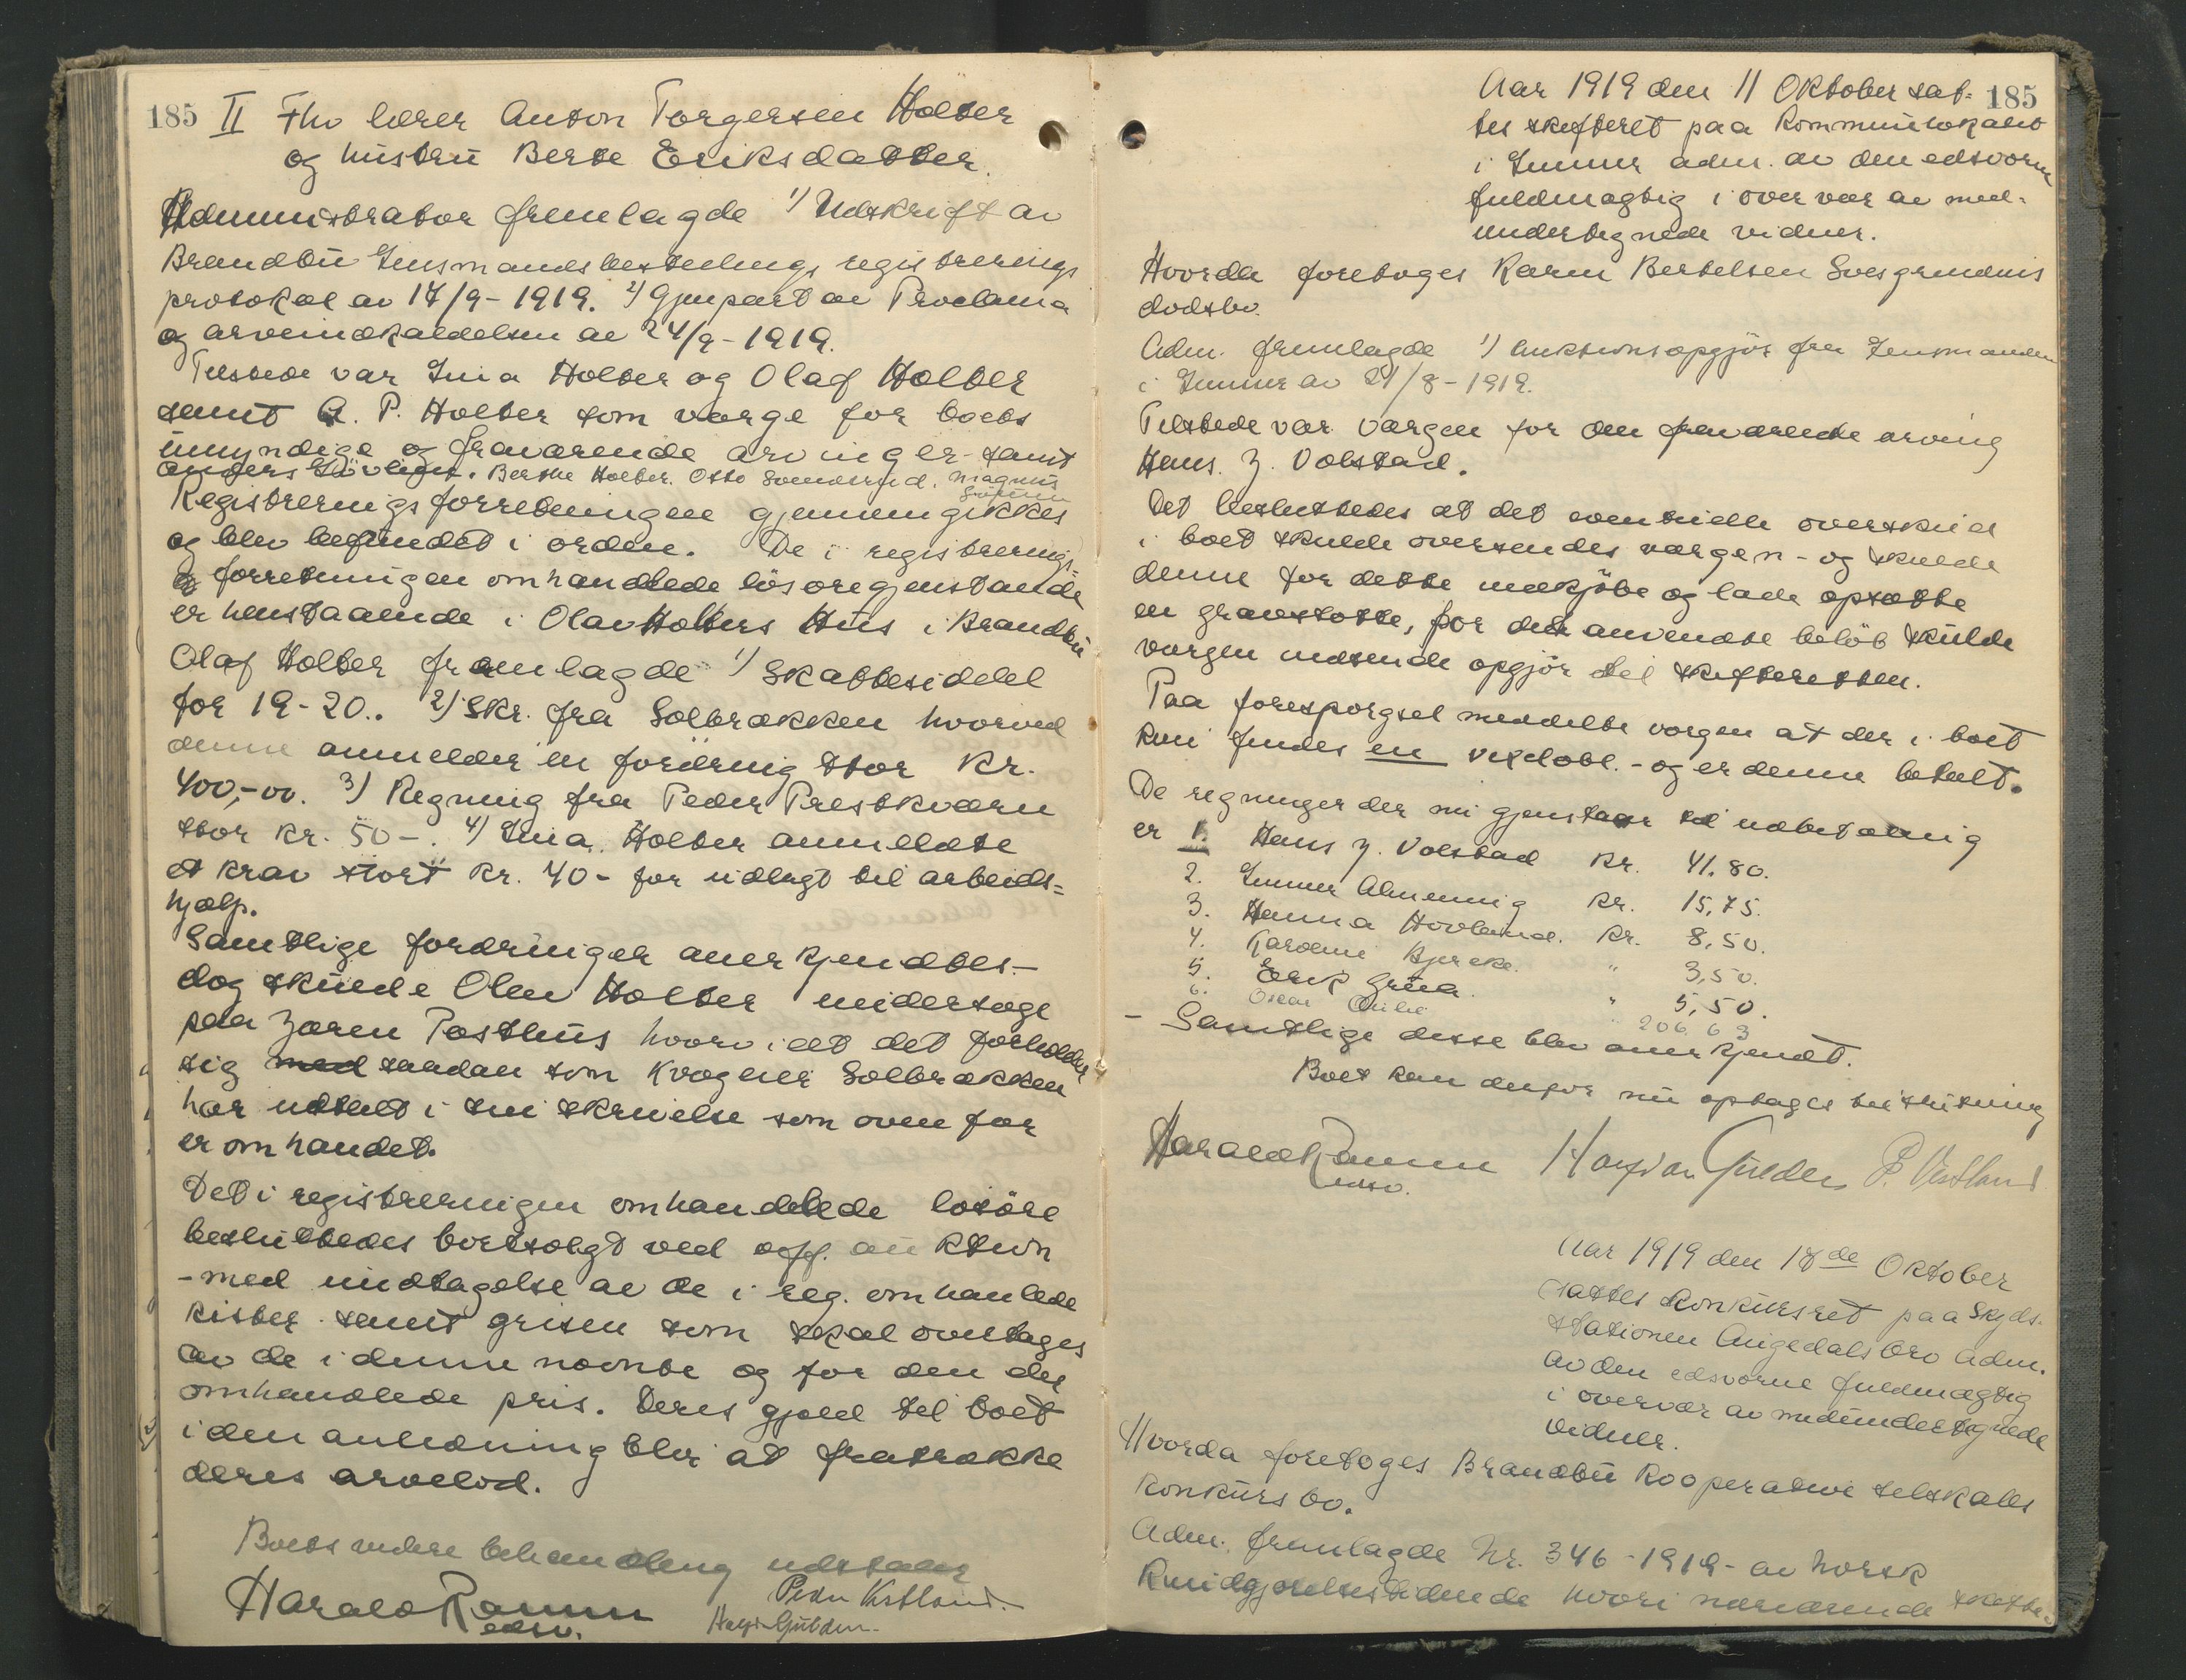 185 II Fhv lærer Anton Torgersen Holter
og hustru Berte Eriksdatter.
Administrator fremlagde 1) Udskrift av
Brandbu lensmandsbestillings registrerings
protokol av 17/9-1919. 2) Gjenpart av Proclama
og arveindkaldelsen av 24/9-1919.
Tilstede var Inia Holter og Olaf Holter
samt A. P. Holter som værge for boets
umyndige og fraværende arvinger samt
Anders. Berthe Holter. Otto. Magnus
Registreringsforretningen gjennemgikkes
og blev befundet i orden. De i registrerings-
forretningen omhandlede løsøregjenstande
er henstaaende i Olav Holters Hus i Brandbu
Olaf Holter fremlagde 1) Skatteseddel
for 19-20.. 2) Skr. fra Solbrækken hvorved
denne anmelder en fordring stor kr.
400,-00. 3) Regning fra Peder Prestkværn
stor kr. 50-. 4) Inia Holter anmeldte
et krav stort kr. 40- for udlagt til arbeids=
hjælp.
Samtlige fordringer anerkjendtes.-
dog skulde Olav Holter undersøge
paa Jaren Posthus hvorvidt det forholder
sig med saadan som Solbrækken
har udtalt i sin skrivelse som oven for
er omhandlet.
Det i registreringen omhandlede løsøre
besluttedes bortsolgt ved off. auktion
- med undtagelse av de i reg. omhanlede
kister samt grisen som skal overtages
av de i denne nævnte og for den der
omhandlede pris. Deres gjæld til boet
i den anledning blir at fratrække
deres arvelod.
Boets videre behandling udstaar
Harald Ramm Peder Vestland.
edsv.
Aar 1919 den 11 Oktober sat- 185
tes skifteret paa Kommunelokalet
i Lunner adm. av den edsvorne
fuldmægtig i overvær av med-
undertegnede vidner.
Hvorda foretoges Karen Bertelsen
dødsbo.
Adm. fremlagde 1) Auktionsopgjør fra Lensmanden
i Lunner av 21/8-1919.
Tilstede var værgen for den fraværende arving
Hans. J. Volstad.
Det besluttedes at det eventuelle overskud
i boet skulde oversendes værgen - og skulde
denne for dette indkjøbe og lade opsætte
en gravstøtte, for det anvendte beløb skulde
værgen indsende opgjør til skifteretten.
Paa forespørgsel meddelte værgen at der i boet
kun findes en vexelobl. - og er denne betalt.
De regninger der nu gjenstaar til udbetaling
er 1. Hans J. Volstad Kr. 41.80.
2. Lunner Almenning Kr. 15,75.
3. Hanna Hovland. Kr. 8,50.
4. Karoline Bjerke. " 3,50.
5. Erik Grua. " 5,50.
6. Oscar " 206,63
- Samtlige disse blev anerkjendt.
Boet kan derfor nu optages til slutning
Harald Ramm P. Vestland
edsv.
Aar 1919 den 18de Oktober
sattes Konkursret paa Skyds-
stationen Augedals bro adm.
av den edsvorne fuldmægtig
i overvær av medundertegnede
vidner.
Hvorda foretoges Brandbu Kooperative selskabs
konkursbo.
Adm. fremlagde Nr. 346-1919- av Norsk
Kundgjørelsestidende hvori nærværende